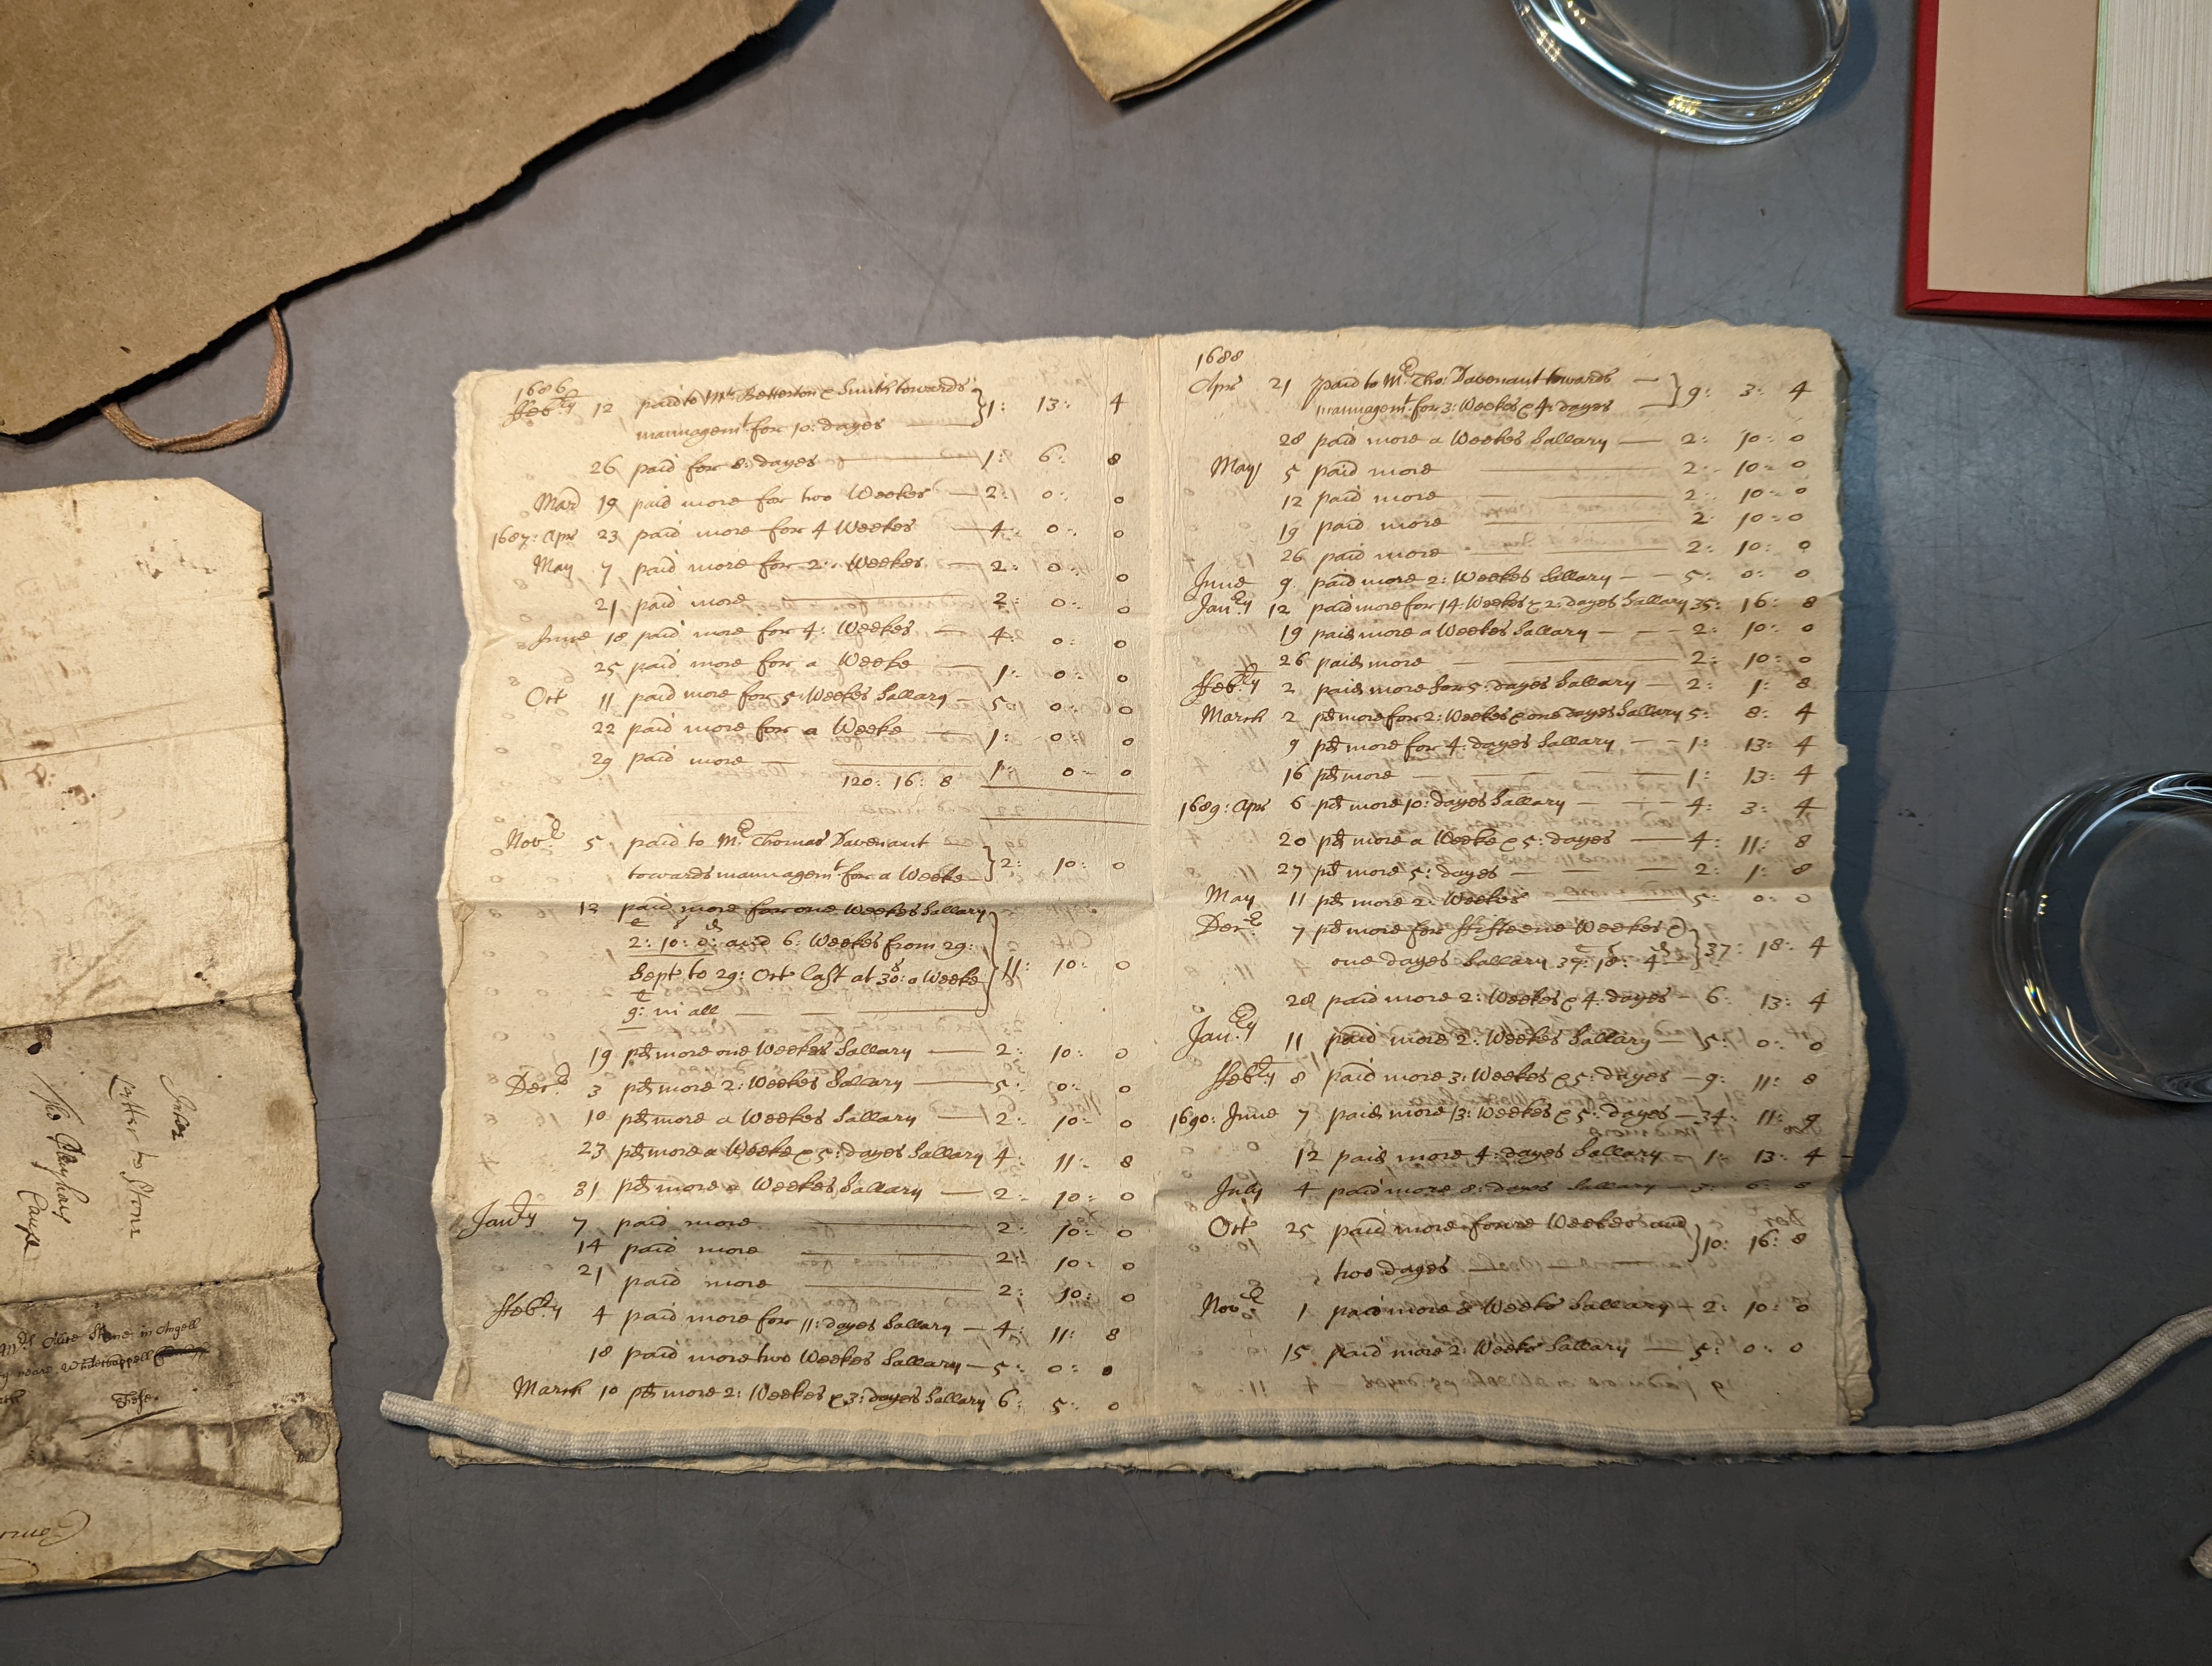 1686
ffebry 12 paid to Mr Betterton & Smith towards
mannagemt for 10: dayes 1: 13: 4
26 paid for 8: dayes 1: 6: 8
Mar 19 paid more for two Weekes 2: 0: 0
1687: Apr 23 paid more for 4 Weekes 4: 0: 0
May 7 paid more for 2: Weekes 2: 0: 0
21 paid more 2: 0: 0
June 18 paid more for 4: Weekes 4: 0: 0
25 paid more for a Weeke 1: 0: 0
Oct 11 paid more for 5: Weekes Sallary 5: 0: 0
22 paid more for a Weeke 1: 0: 0
29 paid more 1: 0: 0
120: 16: 8
Novr 5 paid to Mr Thomas Davenant
towards mannagemt for a Weeke 2: 10: 0
12 paid more for one Weekes Sallary
£ s d
2: 10: 0: and 6: Weekes from 29:
Sept to 29: Oct last at 30s: a Weeke 11: 10: 0
£
9: in all
19 pd more one Weekes Sallary 2: 10: 0
Decr 3 pd more 2: Weekes Sallary 5: 0: 0
10 pd more a Weekes Sallary 2: 10: 0
23 pd more a Weeke & 5: dayes Sallary 4: 11: 8
31 pd more a Weekes Sallary 2: 10: 0
Janry 7 paid more 2: 10: 0
14 paid more 2: 10: 0
21 paid more 2: 10: 0
ffebry 4 paid more for 11: dayes Sallary 4: 11: 8
18 paid more two Weekes Sallary 5: 0: 0
March 10 pd more 2: Weekes & 3: dayes Sallary 6: 5: 0
1688
Apr 21 paid to Mr Tho: Davenant towards
mannagemt for 3: Weekes & 4: dayes 9: 3: 4
28 paid more a Weekes Sallary 2: 10: 0
May 5 paid more 2: 10: 0
12 paid more 2: 10: 0
19 paid more 2: 10: 0
26 paid more 2: 10: 0
June 9 paid more 2: Weekes Sallary 5: 0: 0
Janry 12 paid more for 14: Weekes & 2: dayes Sallary 35: 16: 8
19 paid more a Weekes Sallary 2: 10: 0
26 paid more 2: 10: 0
ffebry 2 paid more for 5: dayes Sallary 2: 1: 8
March 2 pd more for 2: Weekes & one dayes Sallary 5: 8: 4
9 pd more for 4: dayes Sallary 1: 13: 4
16 pd more 1: 13: 4
1689: Apr 6 pd more 10: dayes Sallary 4: 3: 4
20 pd more a Weeke & 5: dayes 4: 11: 8
27 pd more 5: dayes 2: 1: 8
May 11 pd more 2: Weekes 5: 0: 0
Decr 7 pd more for ffifteene Weekes &
one dayes Sallary 37: 18: 4 37: 18: 4
28 paid more 2: Weekes & 4: dayes 6: 13: 4
Janry 11 paid more 2: Weekes Sallary 5: 0: 0
ffebry 8 paid more 3: Weekes & 5: dayes 9: 11: 8
1690: June 7 paid more 13: Weekes & 5: dayes 34: 11: 9
12 paid more 4: dayes Sallary 1: 13: 4
July 4 paid more 8: dayes Sallary 3: 6: 8
Oct 25 paid more foure Weekes and
two dayes 10: 16: 8
Novr 1 paid more a Weeks Sallary 2: 10: 0
15 paid more 2: Weeks Sallary 5: 0: 0
Letter to Stone
Mrs Alice Stone in Angell
These.